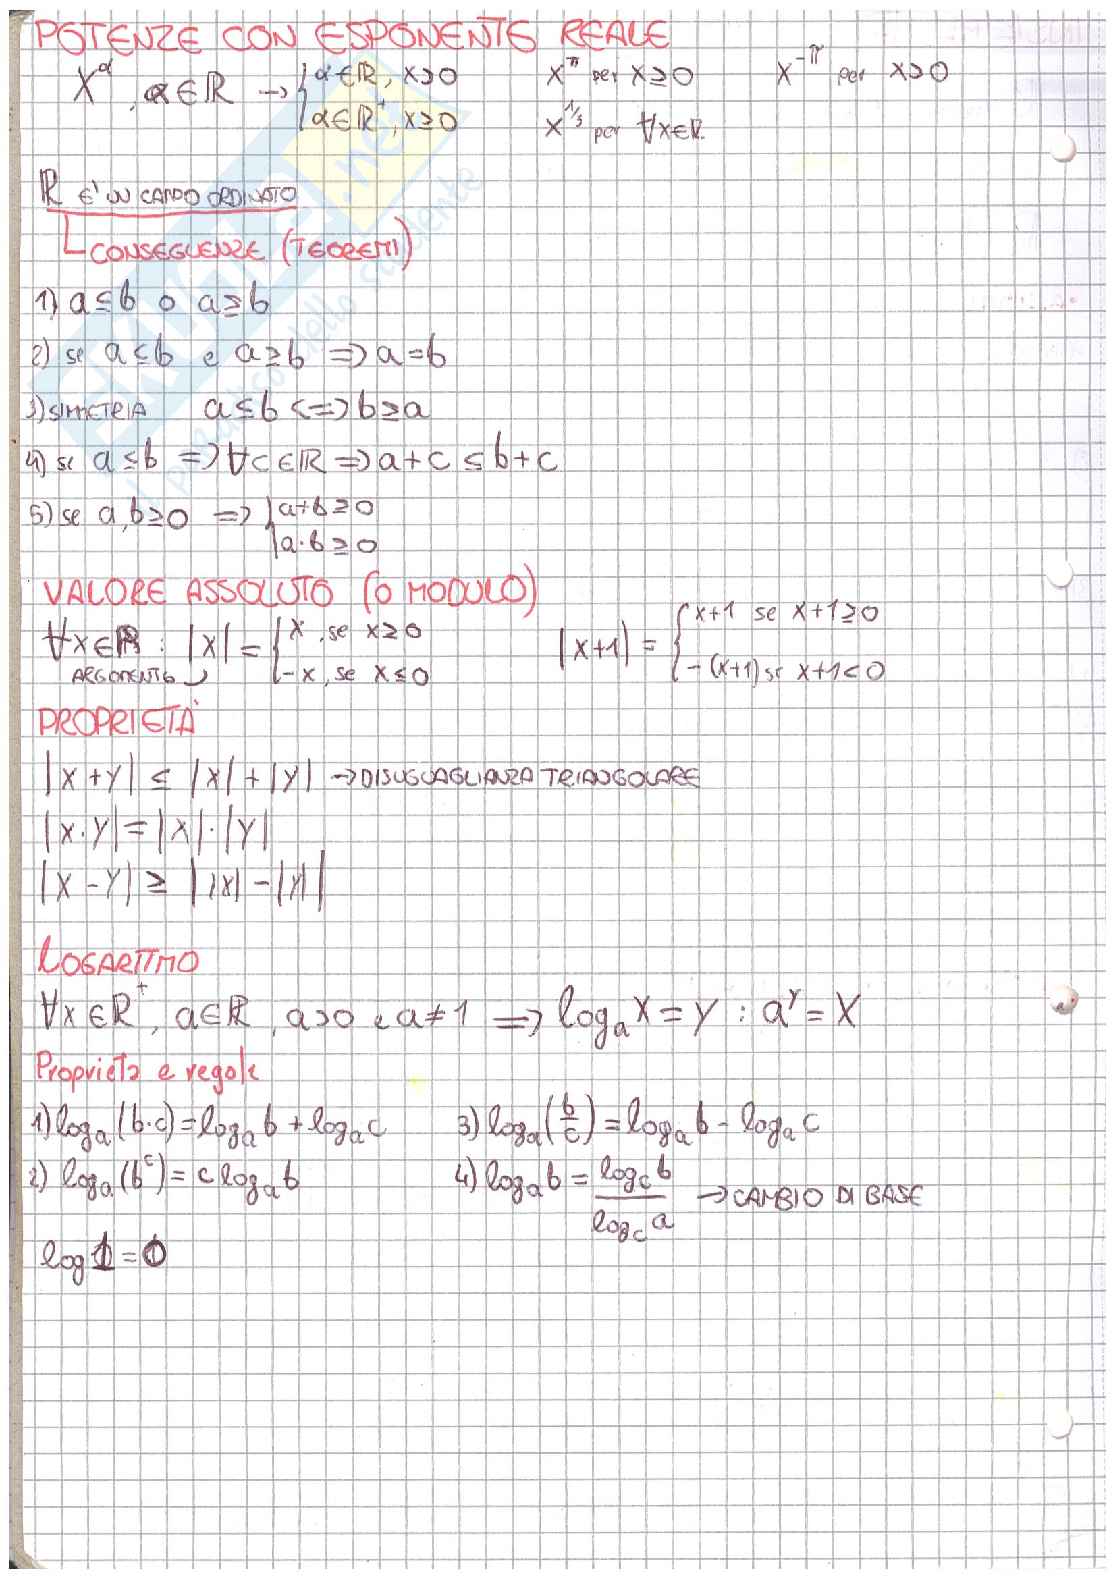 POTENZE CON ESPONENTE REALE
x^α, α∈ℝ → { α∈ℝ, x>0   x^π per x≥0   x^-π per x>0
{ α∈ℝ⁺, x≥0   x^1/3 per ∀x∈ℝ
ℝ E' UN CAMPO ORDINATO
CONSEGUENZE (TEOREMI)
1) a≤b o a≥b
2) se a≤b e a≥b => a=b
3) SIMMETRIA a≤b <=> b≥a
4) se a≤b => ∀c∈ℝ => a+c ≤ b+c
5) se a,b≥0 => { a+b≥0
{ a·b≥0
VALORE ASSOLUTO (O MODULO)
∀x∈ℝ : |x| = { x, se x≥0   |x+1| = { x+1 se x+1≥0
ARGOMENTO   { -x, se x≤0   { -(x+1) se x+1<0
PROPRIETÀ
|x+y| ≤ |x|+|y| → DISUGUAGLIANZA TRIANGOLARE
|x·y| = |x|·|y|
|x-y| ≥ ||x|-|y||
LOGARITMO
∀x∈ℝ⁺, a∈ℝ, a>0 e a≠1 => log_a x = y : a^y = x
Proprietà e regole
1) log_a (b·c) = log_a b + log_a c   3) log_a (b/c) = log_a b - log_a c
2) log_a (b^c) = c log_a b   4) log_a b = log_c b / log_c a → CAMBIO DI BASE
log 1 = 0